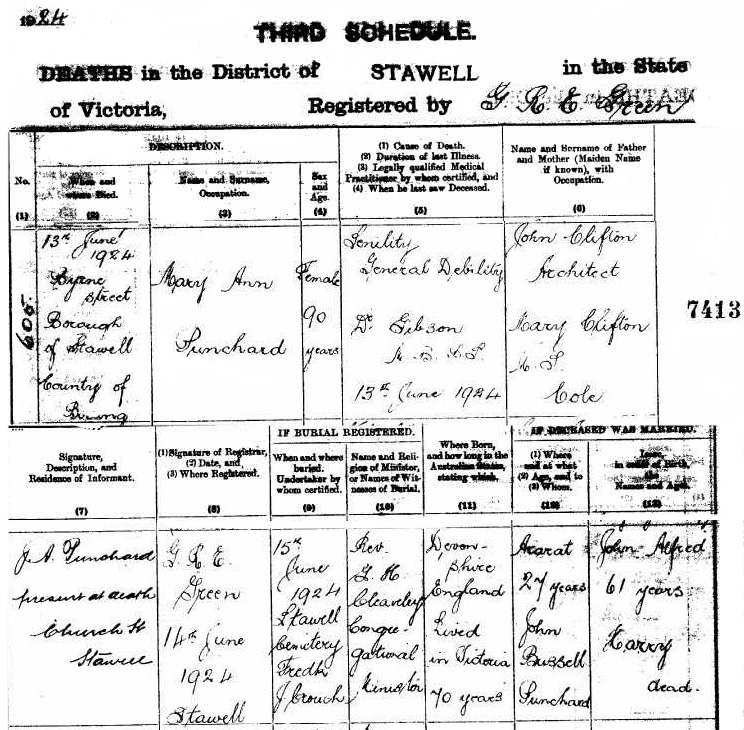 1924
THIRD SCHEDULE.
DEATHS in the District of STAWELL in the State
of Victoria, Registered by G. R. E. Green
DESCRIPTION.
No.
(1)
When and
where Died.
(2)
Name and Surname,
Occupation.
(3)
Sex
and
Age.
(4)
(1) Cause of Death.
(2) Duration of last Illness.
(3) Legally qualified Medical
Practitioner by whom certified, and
(4) When he last saw Deceased.
(5)
Name and Surname of Father
and Mother (Maiden Name
if known), with
Occupation.
(6)
605.
13th June
1924
Byrne
street
Borough
of Stawell
Country of
Borung
Mary Ann
Punchard
Female
90
years
Senility
General Debility
Dr Gibson
13th June 1924
John Clifton
Architect
Mary Clifton
M. S.
Cole
7413
Signature,
Description, and
Residence of Informant.
(7)
(1) Signature of Registrar,
(2) Date, and
(3) Where Registered.
(8)
IF BURIAL REGISTERED.
When and where
buried.
Undertaker by
whom certified.
(9)
Name and Reli-
gion of Minister,
or Names of Wit-
nesses of Burial.
(10)
Where Born,
and how long in the
Australian States,
stating which.
(11)
IF DECEASED WAS MARRIED.
(1) Where
and at what
(2) Age, and to
(3) Whom.
(12)
Issue,
in order of Birth,
the
Names and Ages.
(13)
J. A. Punchard
present at death
Church St
Stawell
G. R. E.
Green
14th June
1924
Stawell
15th
June
1924
Stawell
Cemetery
Fredk
J Crouch
Rev.
Cleaveley
Congre-
gational
Minister
Devon-
shire
England
Lived
in Victoria
70 years
Ararat
27 years
John
Bussell
Punchard
John Alfred
61 years
Harry
dead.